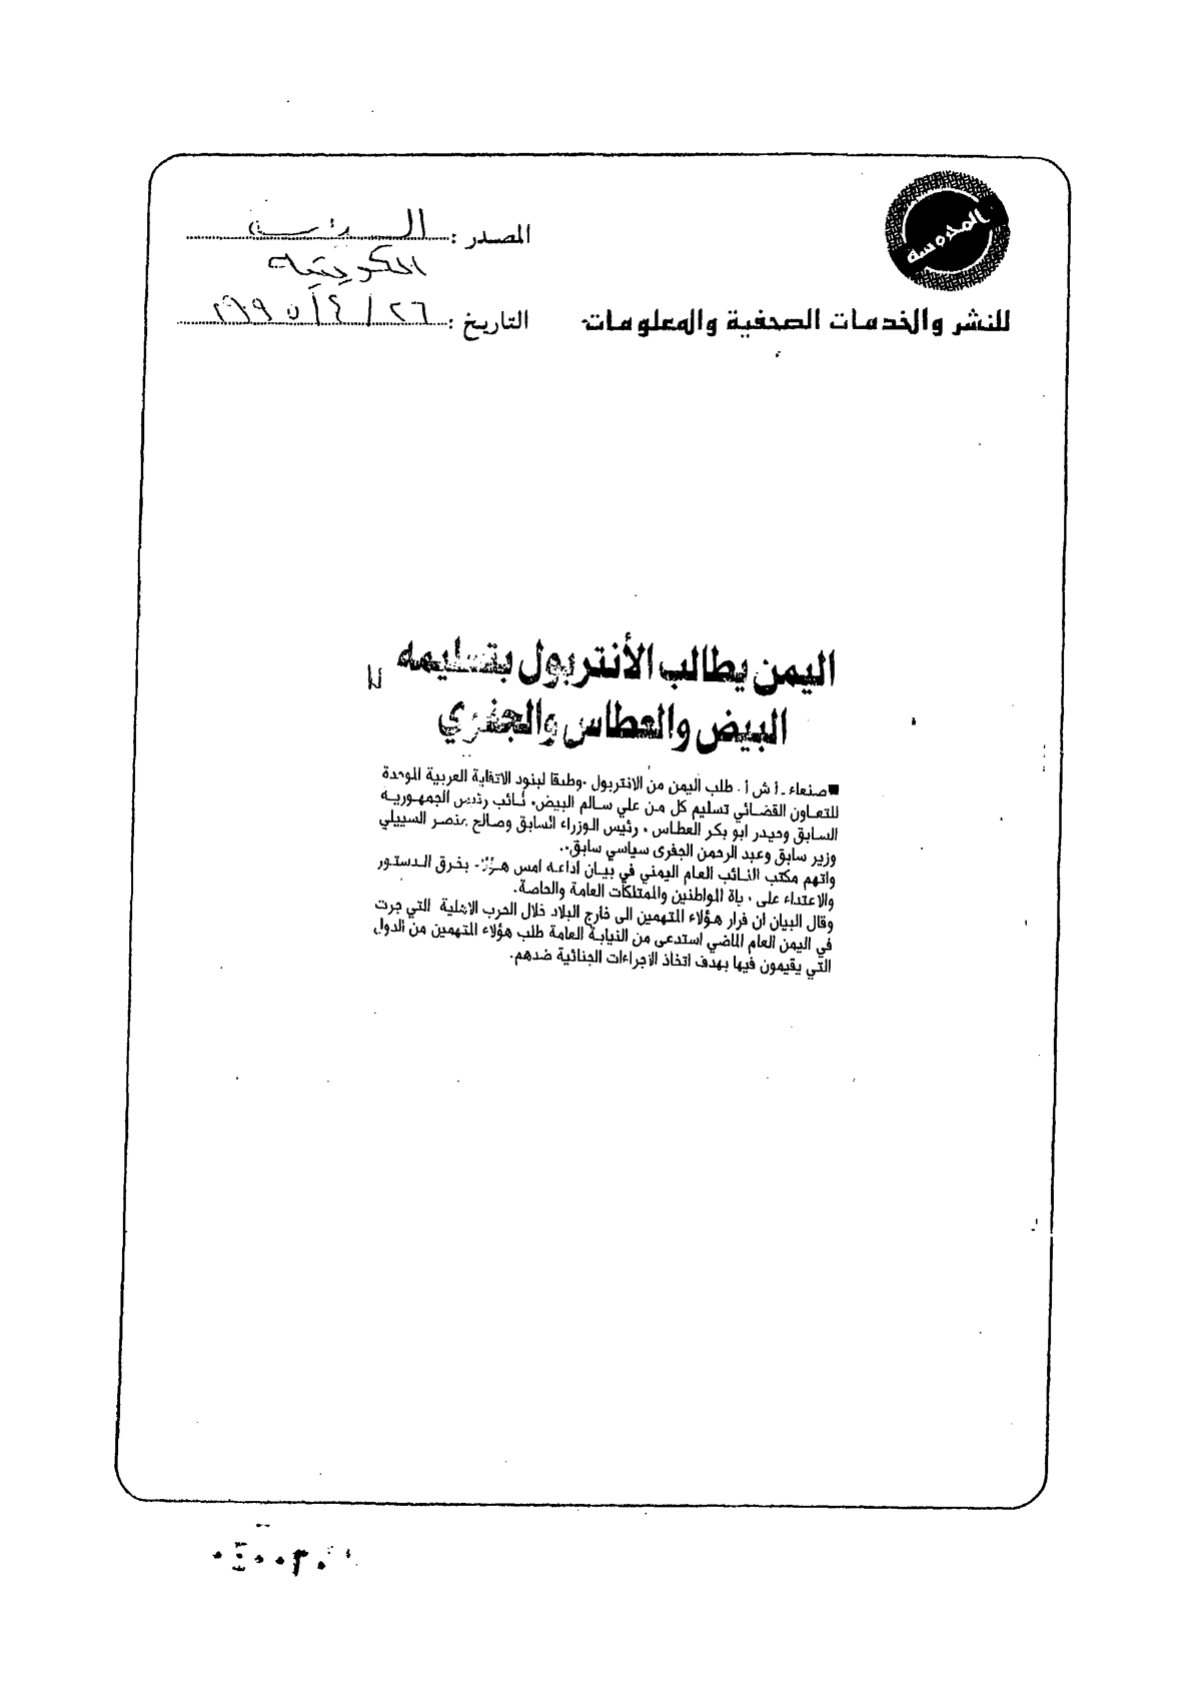 المحروسة
المصدر :
الكويتية
التاريخ : ٢٦ / ٤ / ١٩٩٥
للنشر والخدمات الصحفية والمعلومات
اليمن يطالب الأنتربول بتسليمه
البيض والعطاس والجفري
■ صنعاء ـ أ ش أ . طلب اليمن من الانتربول .وطبقا لبنود الاتفاية العربية الموحدة
للتعاون القضائي تسليم كل من علي سالم البيض، نائب رئيس الجمهورية
السابق وحيدر ابو بكر العطاس ، رئيس الوزراء السابق وصالح منصر السييلي
وزير سابق وعبد الرحمن الجفرى سياسي سابق..
واتهم مكتب النائب العام اليمني في بيان اذاعه امس هؤلاء بخرق الدستور
والاعتداء على المواطنين والممتلكات العامة والخاصة.
وقال البيان ان فرار هؤلاء المتهمين الى خارج البلاد خلال الحرب الاهلية التي جرت
في اليمن العام الماضي استدعى من النيابة العامة طلب هؤلاء المتهمين من الدول
التي يقيمون فيها بهدف اتخاذ الاجراءات الجنائية ضدهم.